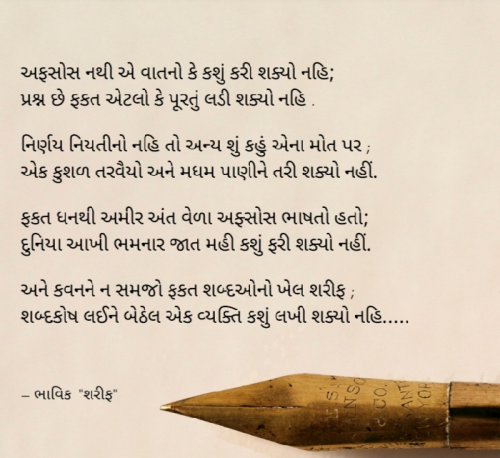 અફસોસ નથી એ વાતનો કે કશું કરી શક્યો નહિ;
પ્રશ્ન છે ફકત એટલો કે પૂરતું લડી શક્યો નહિ .
નિર્ણય નિયતીનો નહિ તો અન્ય શું કહું એના મોત પર ;
એક કુશળ તરવૈયો અને મધમ પાણીને તરી શક્યો નહીં.
ફકત ધનથી અમીર અંત વેળા અફ્સોસ ભાષતો હતો;
દુનિયા આખી ભમનાર જાત મહી કશું ફરી શક્યો નહીં.
અને કવનને ન સમજો ફકત શબ્દઓનો ખેલ શરીફ ;
શબ્દકોષ લઈને બેઠેલ એક વ્યક્તિ કશું લખી શક્યો નહિ.....
– ભાવિક "શરીફ"